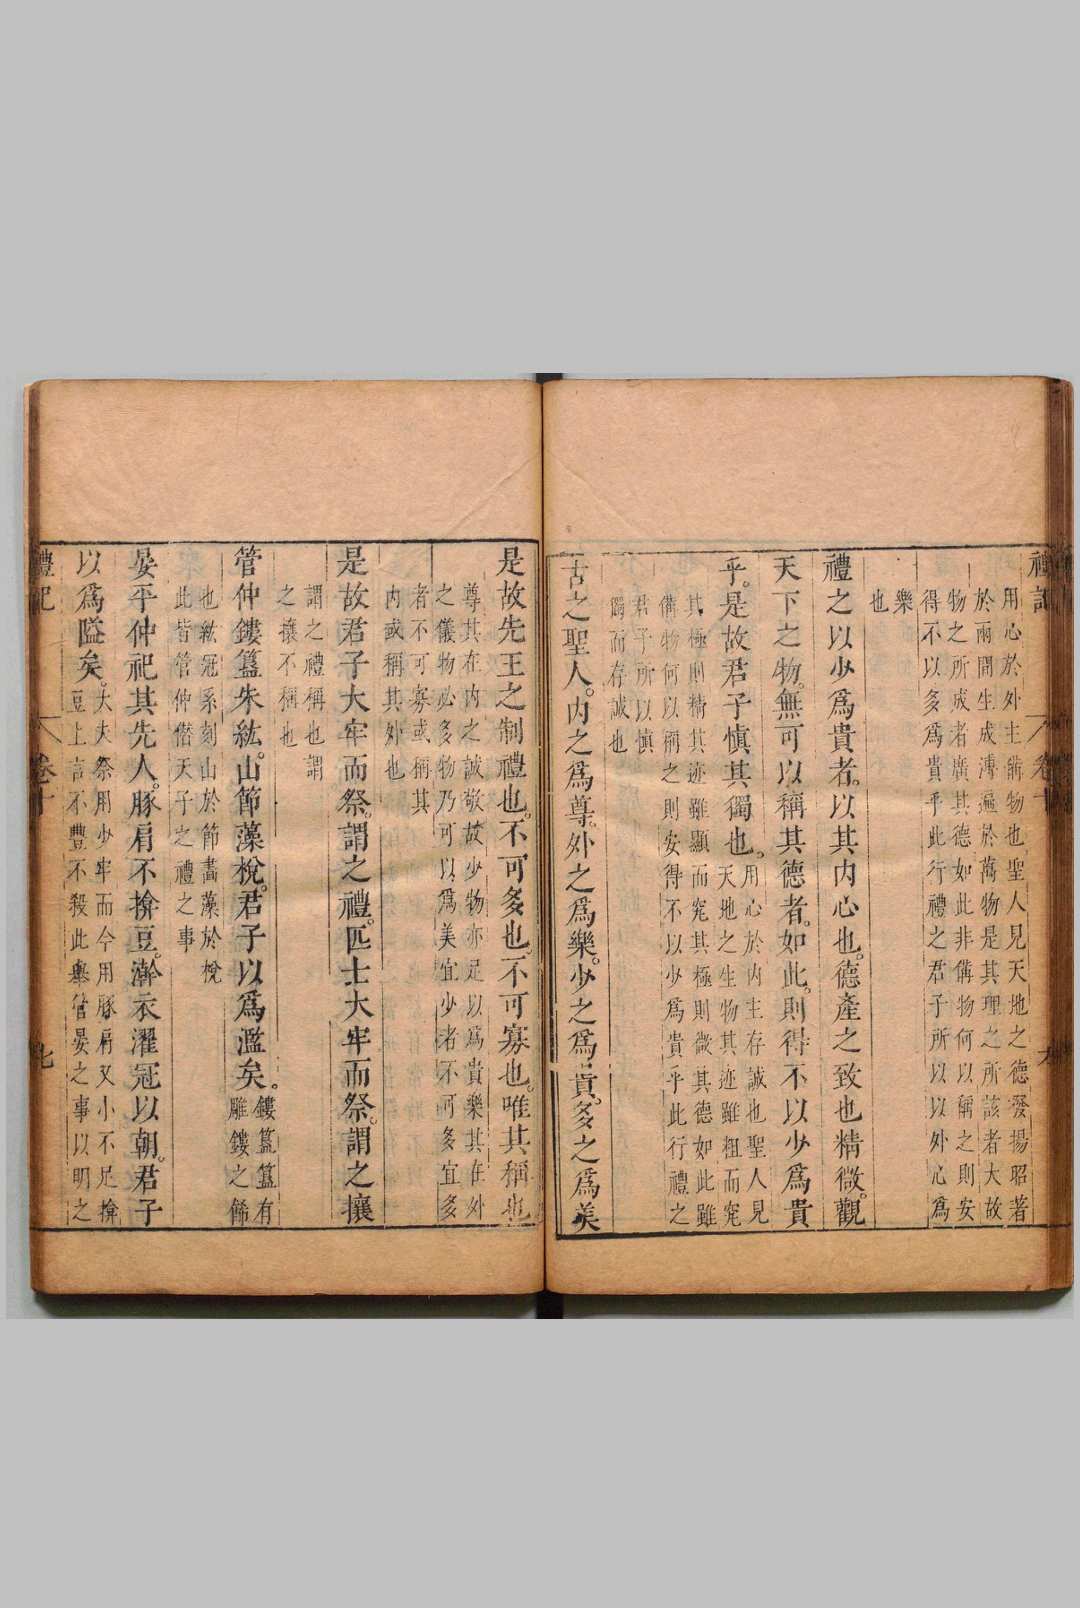 禮記 卷十 大
用心於外主備物也聖人見天地之德發揚昭著
於兩間生成溥遍於萬物是其理之所該者大故
物之所成者廣其德如此非備物何以稱之則安
得不以多爲貴乎此行禮之君子所以外心爲
樂
也
禮之以少爲貴者。以其内心也。德產之致也精微。觀
天下之物。無可以稱其德者。如此。則得不以少爲貴
乎。是故君子慎其獨也。
用心於内主存誠也聖人見
天地之生物其迹雖粗而究
其極則精其迹雖顯而究其極則微其德如此雖
備物何以稱之則安得不以少爲貴乎此行禮之
君子所以慎
獨而存誠也
古之聖人。内之爲尊。外之爲樂。少之爲貴。多之爲美
是故先王之制禮也。不可多也。不可寡也。唯其稱也
尊其在内之誠敬故少物亦足以爲貴樂其在外
之儀物必多物乃可以爲美宜少者不可多宜多
者不可寡或稱其
内或稱其外也
是故君子大牢而祭。謂之禮。匹士大牢而祭。謂之攘
謂之禮稱也謂
之攘不稱也
管仲鏤簋朱紘。山節藻梲。君子以爲濫矣。
鏤簋簋有
雕鏤之飾
也紘冠系刻山於節畵藻於梲
此皆管仲僭天子之禮之事
晏平仲祀其先人。豚肩不揜豆。澣衣濯冠以朝。君子
以爲隘矣。
大夫祭用少牢而今用豚肩又小不足揜
豆上言不豐不殺此舉管晏之事以明之
禮記 卷十